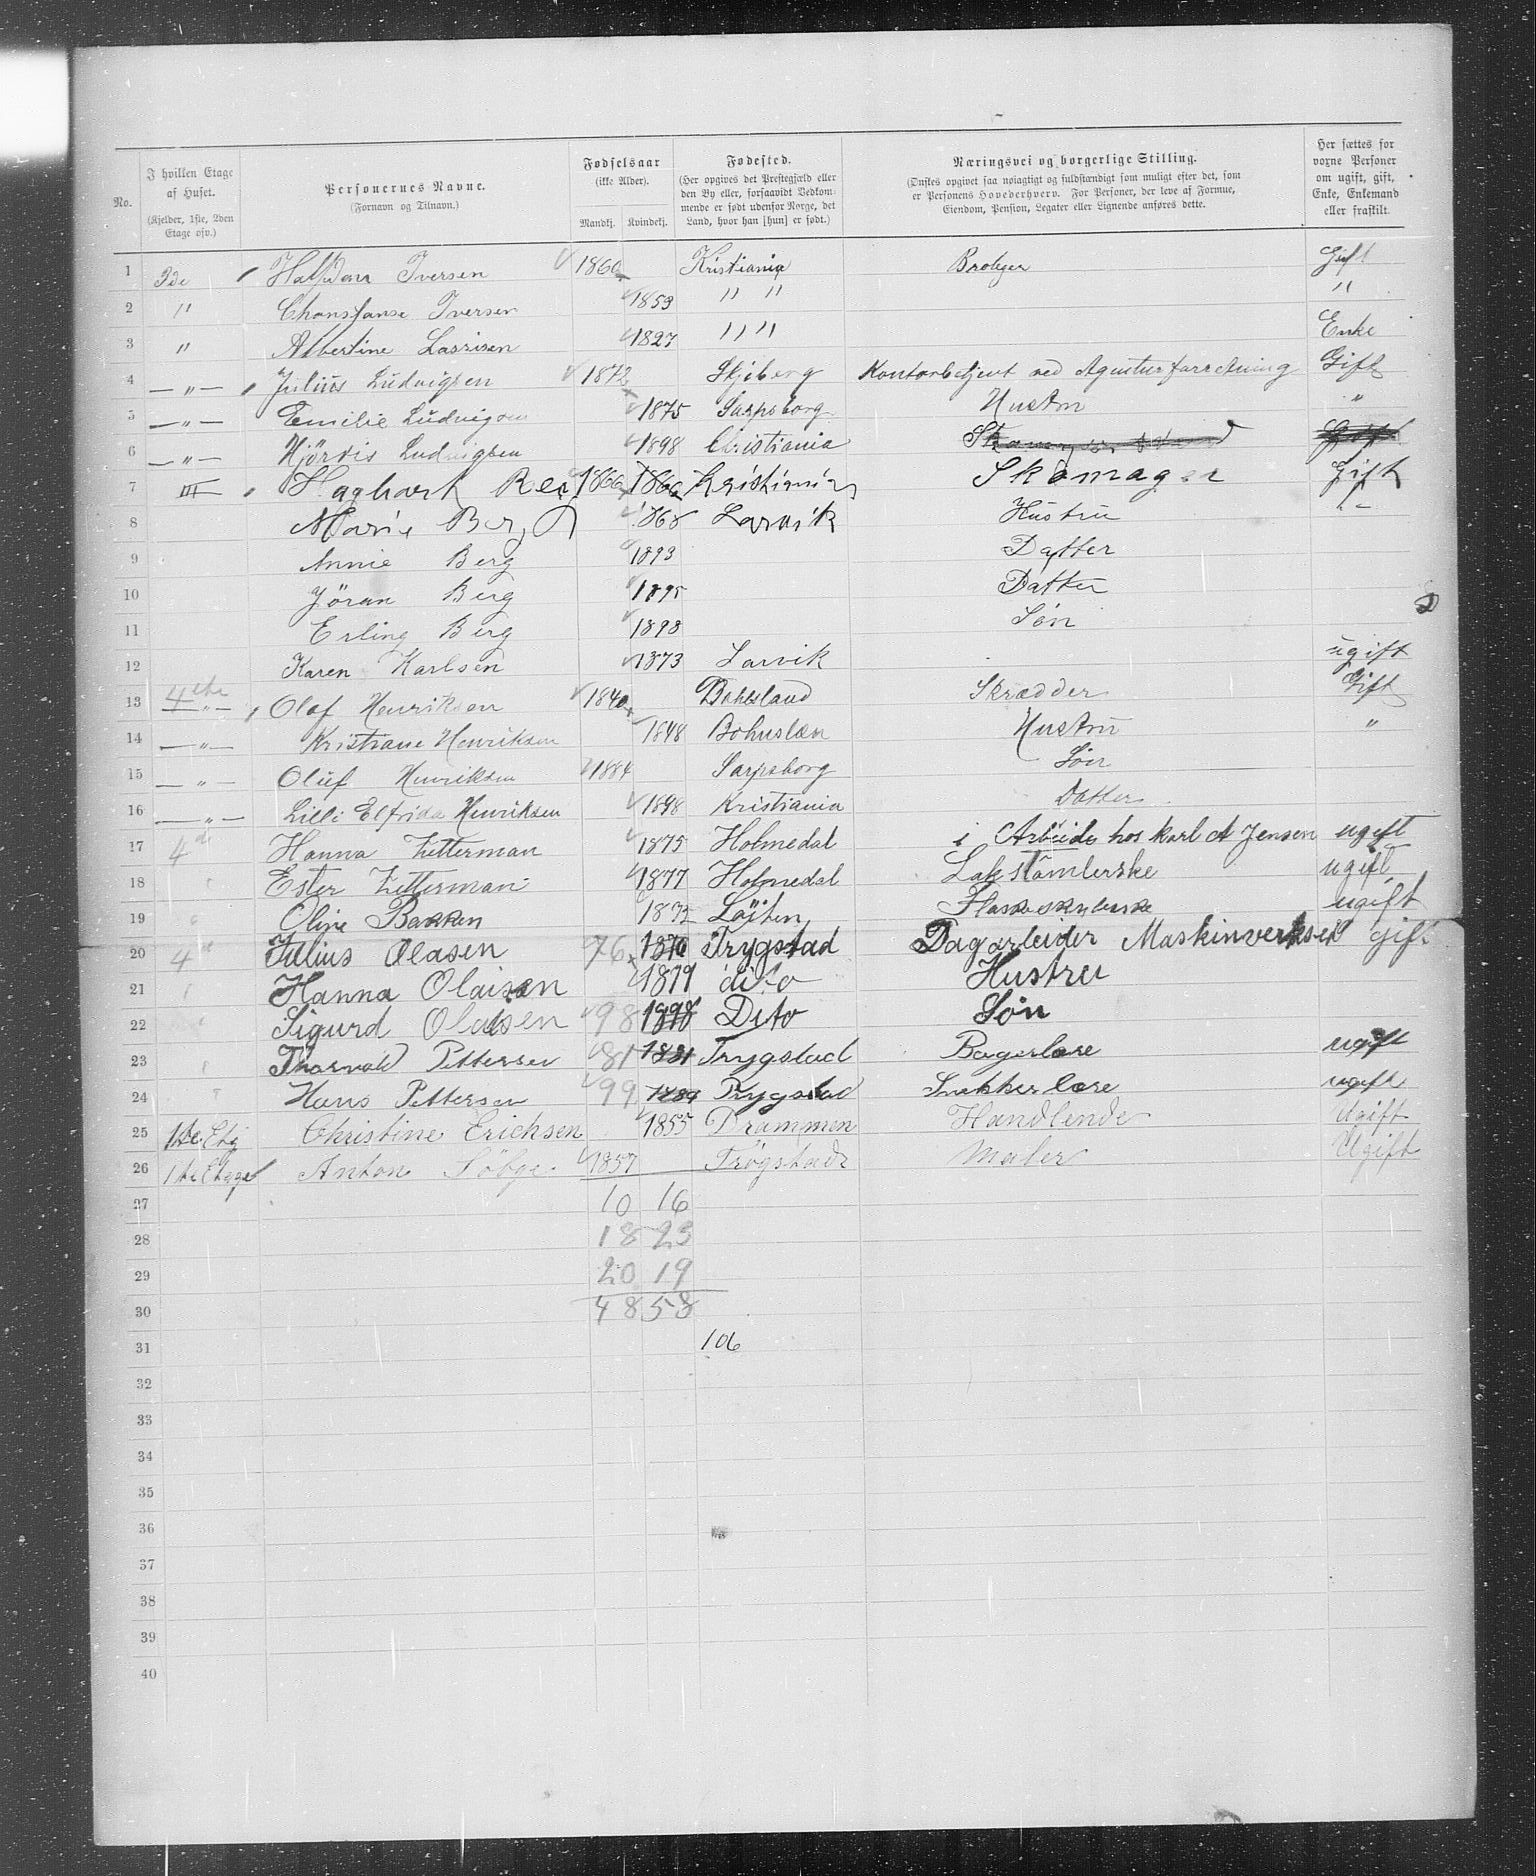 No. | I hvilken Etage af Huset. (Kjelder, 1ste, 2den Etage osv.) | Personernes Navne. (Fornavn og Tilnavn.) | Fødselsaar (ikke Alder). Mandkj. Kvindekj. | Fødested. (Her opgives det Prestegjæld eller den By eller, forsaavidt Vedkommende er født udenfor Norge, det Land, hvor han [hun] er født.) | Næringsvei og borgerlige Stilling. (Ønskes opgivet saa nøiagtigt og fuldstændigt som muligt efter det, som er Personens Hovederhverv. For Personer, der leve af Formue, Eiendom, Pension, Legater eller Lignende anføres dette. | Her sættes for voxne Personer om ugift, gift, Enke, Enkemand eller fraskilt.
1 Halfdan Iversen 1860 Kristiania Gift
2 " Iversen 1853 " " "
3 " Albertine 1827 " " Enke
4 — " — Julius Ludvigsen 1872 Skjeberg Kontorbetjent ved Agenturforretning Gift
5 — " — Emilie Ludvigsen 1875 Sarpsborg Hustru "
6 — " — Hjördis Ludvigsen 1898 Christiania
7 III Haghart 1866 Kristiania Skomager Gift
8 Marie Berg 1868 Larvik Hustru
9 Annie Berg 1893 Datter
10 Jöran Berg 1895 Datter
11 Erling Berg 1898 Søn
12 Karen Karlsen 1873 Larvik ugift
13 4de — " — Olaf Henriksen 1840 Skrædder Gift
14 — " — Kristiane Henriksen 1848 Bohuslæn Hustru "
15 — " — Oluf Henriksen 1884 Sarpsborg Søn
16 — " — Lilli Elfrida Henriksen 1898 Kristiania Datter
17 4de Hanna Zetterman 1875 Holmedal i Arbeide hos Karl A Jensen ugift
18 Ester Zetterman 1877 Holmedal ugift
19 Oline Bakken 1872 Löiten Flaskeskylerske ugift
20 4de Julius Olasen 76 1876 Trygstad Dagarbeider Maskinverksed gift
21 Hanna Olaisen 1879 dito Hustru
22 Sigurd Olaisen 98 1898 Dito Søn
23 Thorvald Pettersen 81 1881 Trygstad Bagerlære ugift
24 Hans Pettersen 99 1884 Trygstad Snekkerlære ugift
25 1ste Etg Christine Erichsen 1855 Drammen Handlende Ugift
26 1ste Etage Anton 1857 Trögstad Maler Ugift
27 10 16
28 18 23
29 20 19
30 48 58
31 106
32
33
34
35
36
37
38
39
40